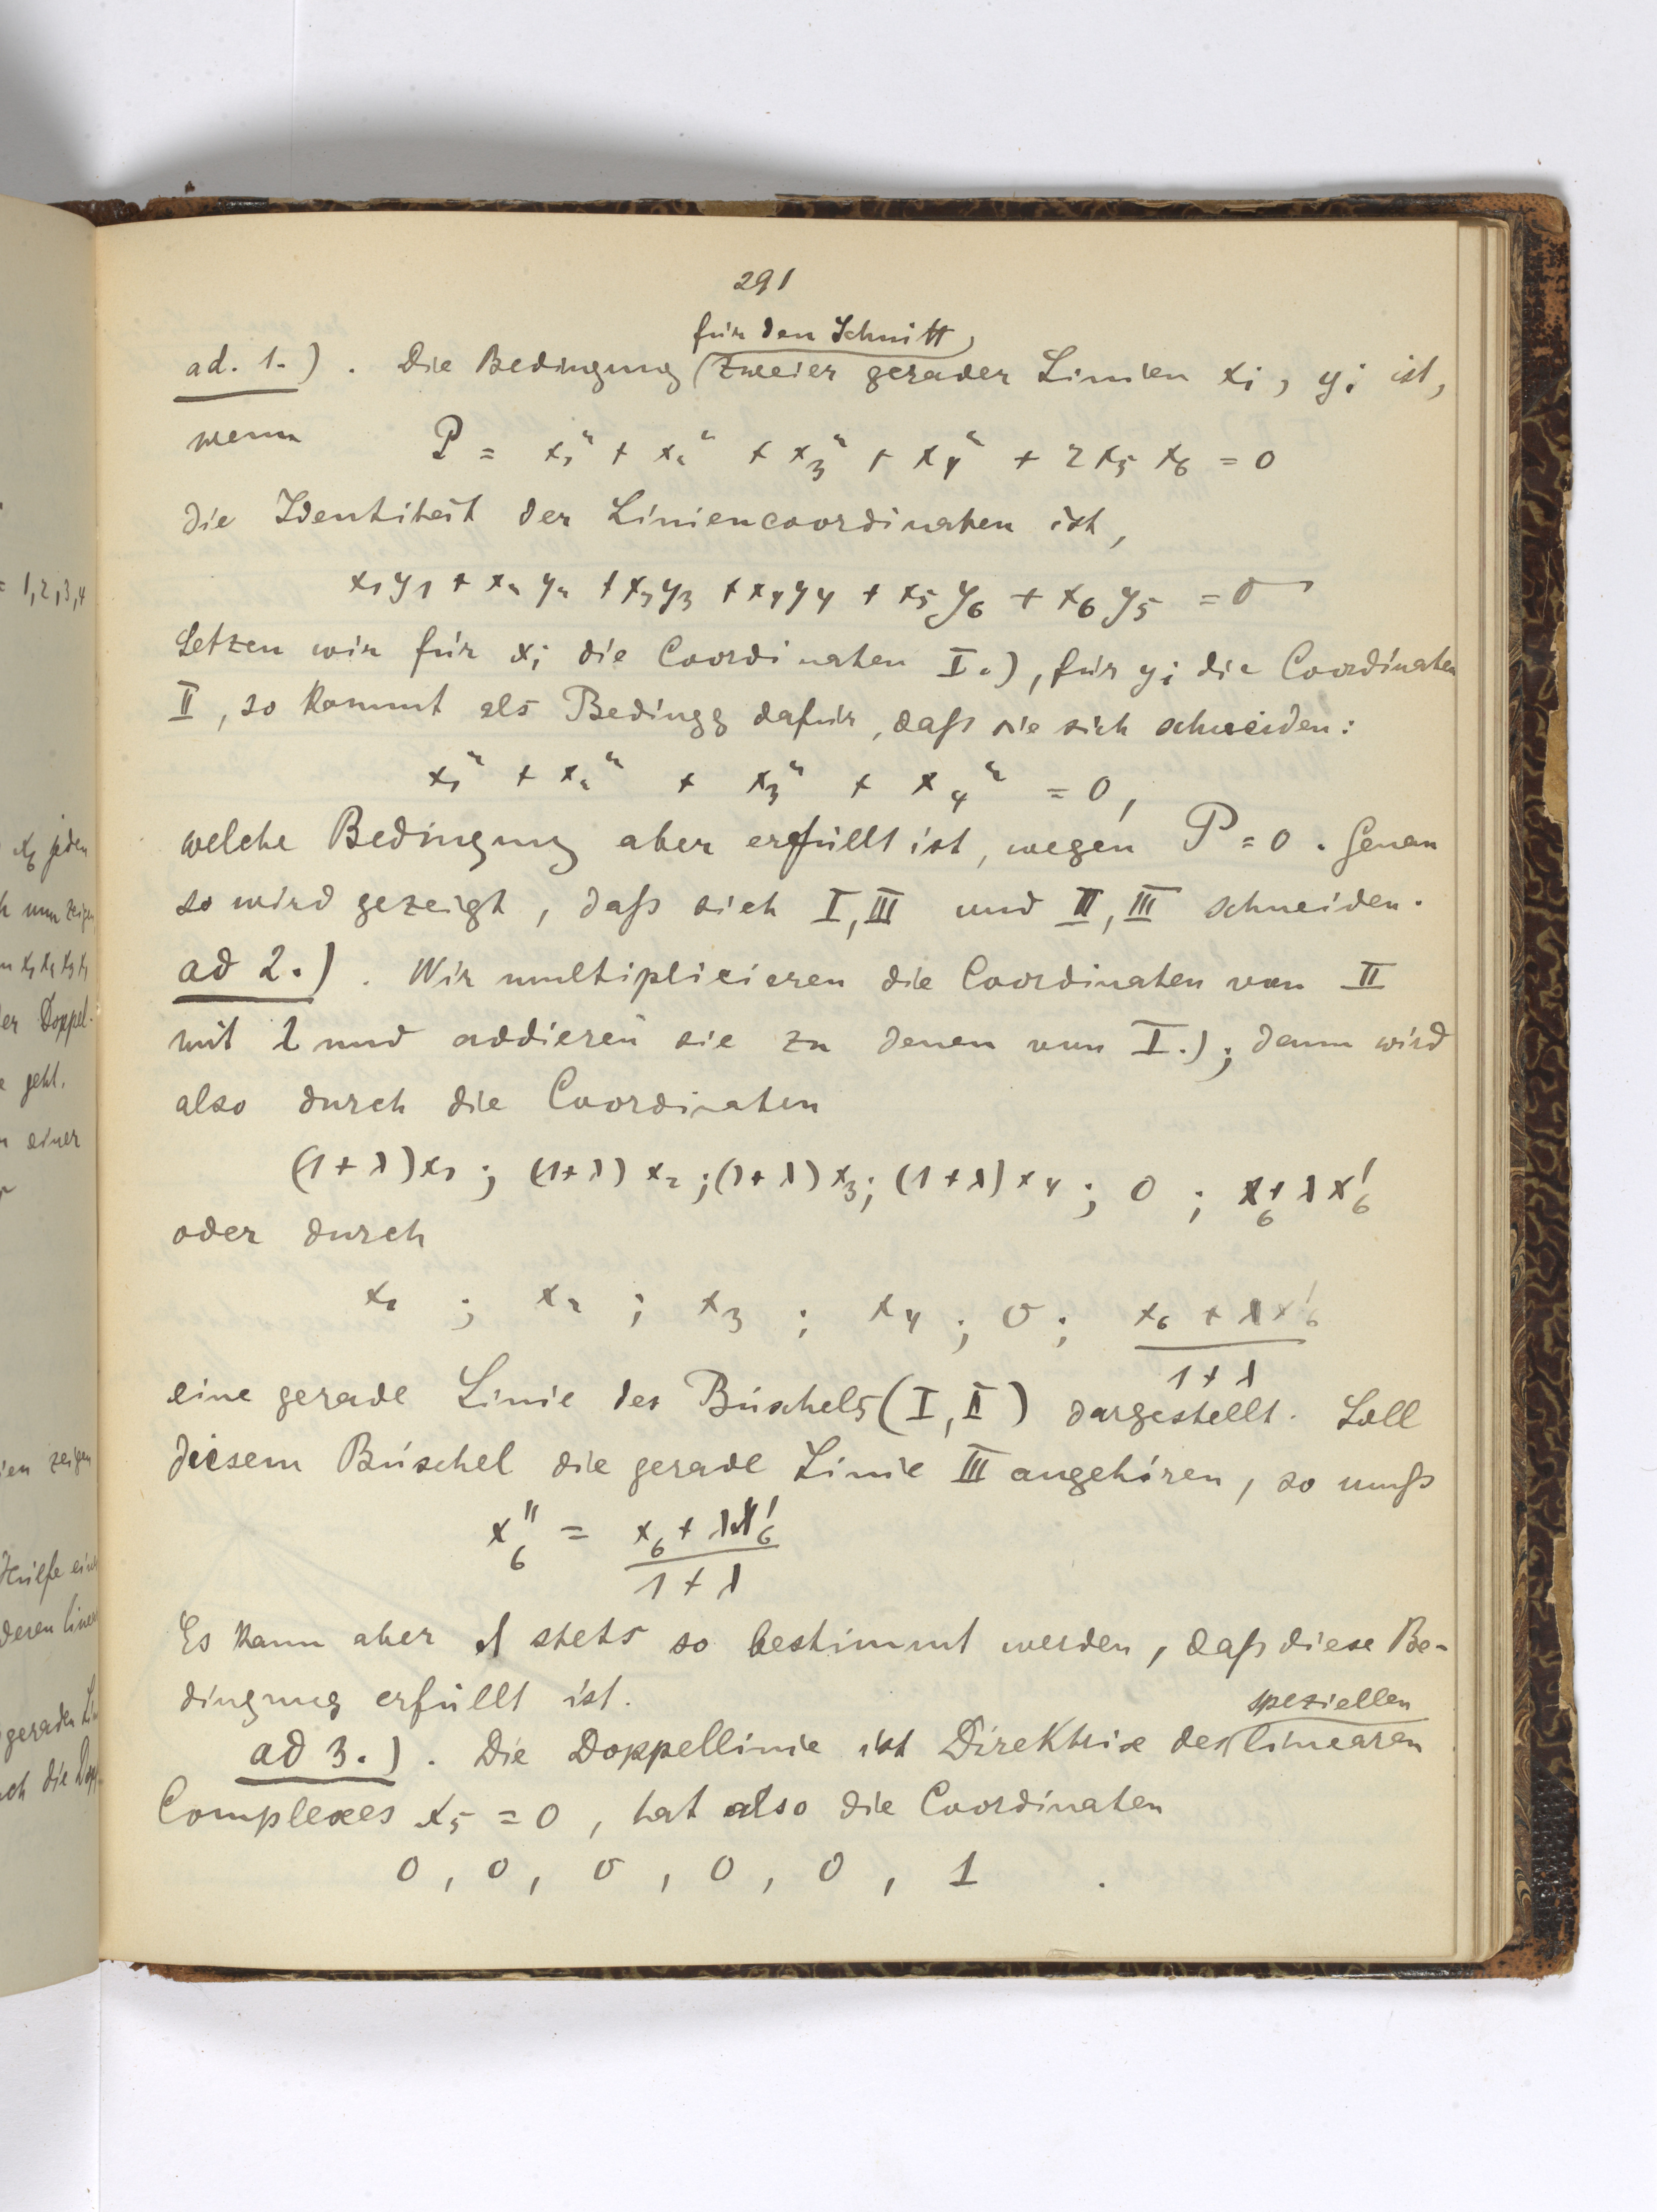 291
für den Schnitt
ad. 1.) . Die Bedingung zweier gerader Linien xᵢ, yᵢ ist,
wenn P = x₁² + x₂² + x₃² + x₄² + 2x₅ x₆ = 0
die Identität der Liniencoordinaten ist,
x₁y₁ + x₂y₂ + x₃y₃ + x₄y₄ + x₅y₆ + x₆y₅ = 0
Setzen wir für xᵢ die Coordinaten I.), für yᵢ die Coordinaten
II, so kommt als Bedingg dafür, daß sie sich schneiden:
x₁² + x₂² + x₃² + x₄² = 0,
welche Bedingung aber erfüllt ist, wegen P = 0. Genau
so wird gezeigt, daß sich I, III und II, III schneiden.
ad 2.) . Wir multiplicieren die Coordinaten von II
mit λ und addieren sie zu denen von I.); dann wird
also durch die Coordinaten
(1+λ)x₁; (1+λ)x₂; (1+λ)x₃; (1+λ)x₄; 0; x₆+λx₆'
oder durch
x₁ ; x₂ ; x₃ ; x₄ ; 0 ; x₆ + λx₆'
1+λ
eine gerade Linie des Büschels (I, II) dargestellt. Soll
diesem Büschel die gerade Linie III angehören, so muß
x₆'' = x₆ + λx₆'
1+λ
Es kann aber λ stets so bestimmt werden, daß diese Be-
dingung erfüllt ist.
speziellen
ad 3.) . Die Doppellinie ist Direktrix des linearen
Complexes x₅ = 0, hat also die Coordinaten
0, 0, 0, 0, 0, 1 .
= 1,2,3,4
x₆ jeden
nun zeigen
x₁ x₂ x₃ x₄
Doppel-
geht.
einer
zeigen
Hülfe
deren
geraden
die